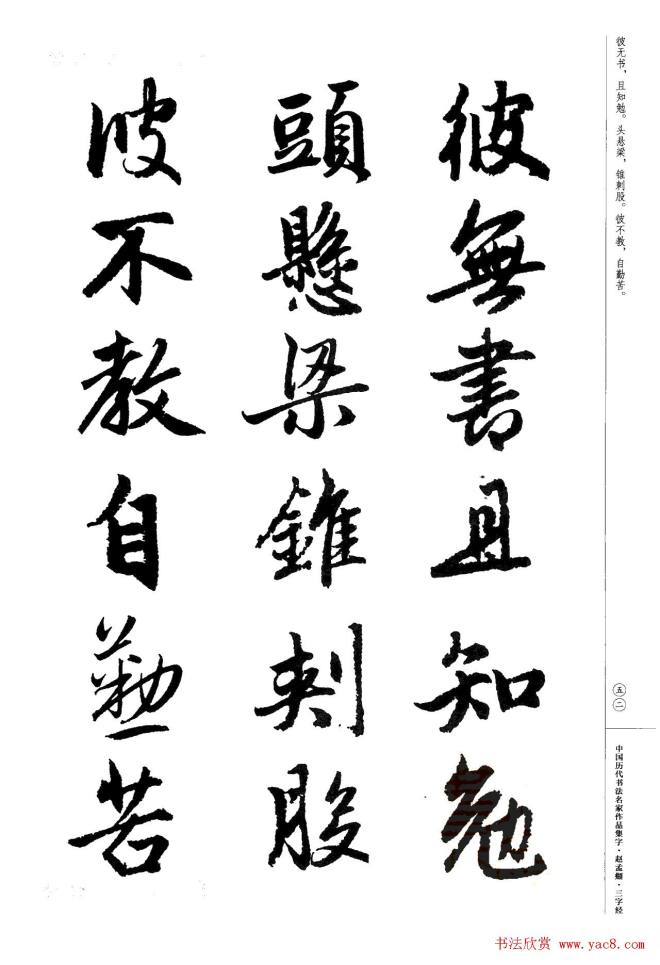 彼无书，且知勉。头悬梁，锥刺股。彼不教，自勤苦。
彼無書且知勉
頭懸梁錐刺股
彼不教自勤苦
五二
中国历代书法名家作品集字·赵孟頫·三字经
书法欣赏 www.yac8.com